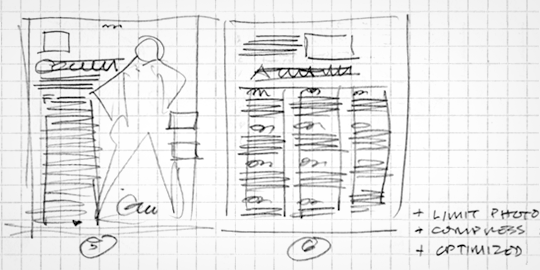 5
6
+ LIMIT PHOTO
+ COMPRESS
+ OPTIMIZED